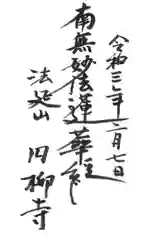 令和三年二月七日
南無妙法蓮華経
法延山 柳寺